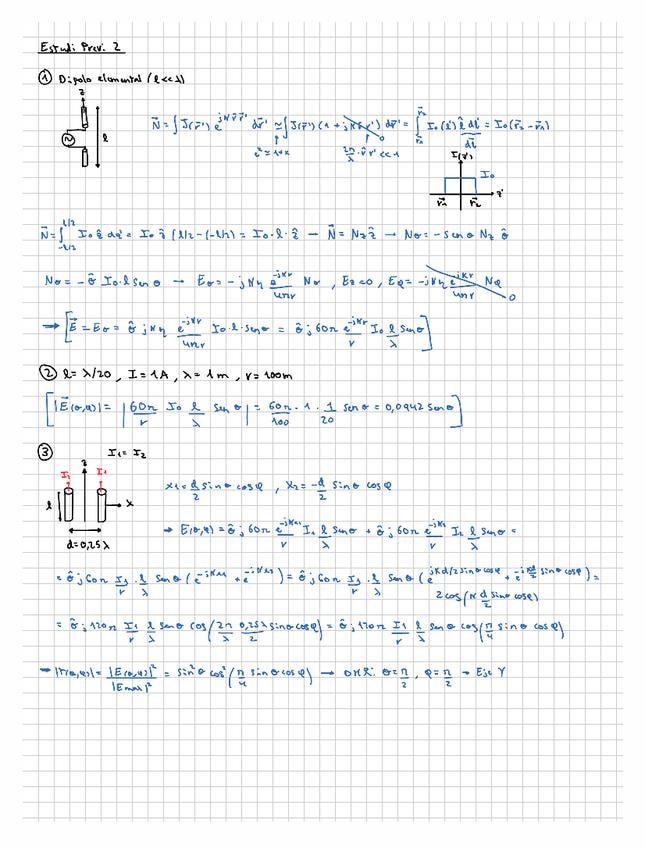 Estudi Previ 2
① Dipolo elemental (l << λ)
z
l
N⃗ = ∫ J⃗(r⃗') e^{jk r̂ r⃗'} dr⃗' ≃ ∫ J⃗(r⃗') (1 + jk r̂ r⃗') dr⃗' = ∫_{r⃗₁}^{r⃗₂} I₀(l') l̂ dl' = I₀(r⃗₂ - r⃗₁)
eˣ ≈ 1+x
2π/λ · r̂ r' << 1
dl⃗
I(z')
I₀
z'
r⃗₁ r⃗₂
N⃗ = ∫_{-l/2}^{l/2} I₀ ẑ dz' = I₀ ẑ (l/2 - (-l/2)) = I₀ · l · ẑ → N⃗ = Nz ẑ → Nθ = - sen θ Nz θ̂
Nθ = - θ̂ I₀ · l sen θ → Eθ = -jkη e^{-jkr}/4πr Nθ , Er = 0 , Eφ = -jkη e^{-jkr}/4πr Nφ 0
⇒ [E⃗ = Eθ = θ̂ jkη e^{-jkr}/4πr I₀ · l · sen θ = θ̂ j 60π e^{-jkr}/r I₀ l/λ sen θ]
② l = λ/20 , I = 1A , λ = 1m , r = 100m
[|E⃗(θ,φ)| = |60π/r I₀ l/λ sen θ| = 60π/100 · 1 · 1/20 sen θ = 0,0942 sen θ]
③ I₁ = I₂
z
I₂ I₁
l
x
d = 0,25λ
x₁ = d/2 sin θ cos φ , x₂ = -d/2 sin θ cos φ
→ E(θ,φ) = θ̂ j 60π e^{-jkr₁}/r I₁ l/λ sen θ + θ̂ j 60π e^{-jkr₂}/r I₂ l/λ sen θ =
= θ̂ j 60π I₁/r · l/λ sen θ (e^{-jkr₁} + e^{-jkr₂}) = θ̂ j 60π I₁/r · l/λ sen θ (e^{jkd/2 sin θ cos φ} + e^{-jkd/2 sin θ cos φ}) =
2 cos(k d/2 sin θ cos φ)
= θ̂ j 120π I₁/r l/λ sen θ cos(2π/λ 0,25λ/2 sin θ cos φ) = θ̂ j 120π I₁/r l/λ sen θ cos(π/4 sin θ cos φ)
→ |r(θ,φ)| = |E(θ,φ)|²/|Emax|² = sin²θ cos²(π/4 sin θ cos φ) → θ = π/2 , φ = π/2 → Eje Y